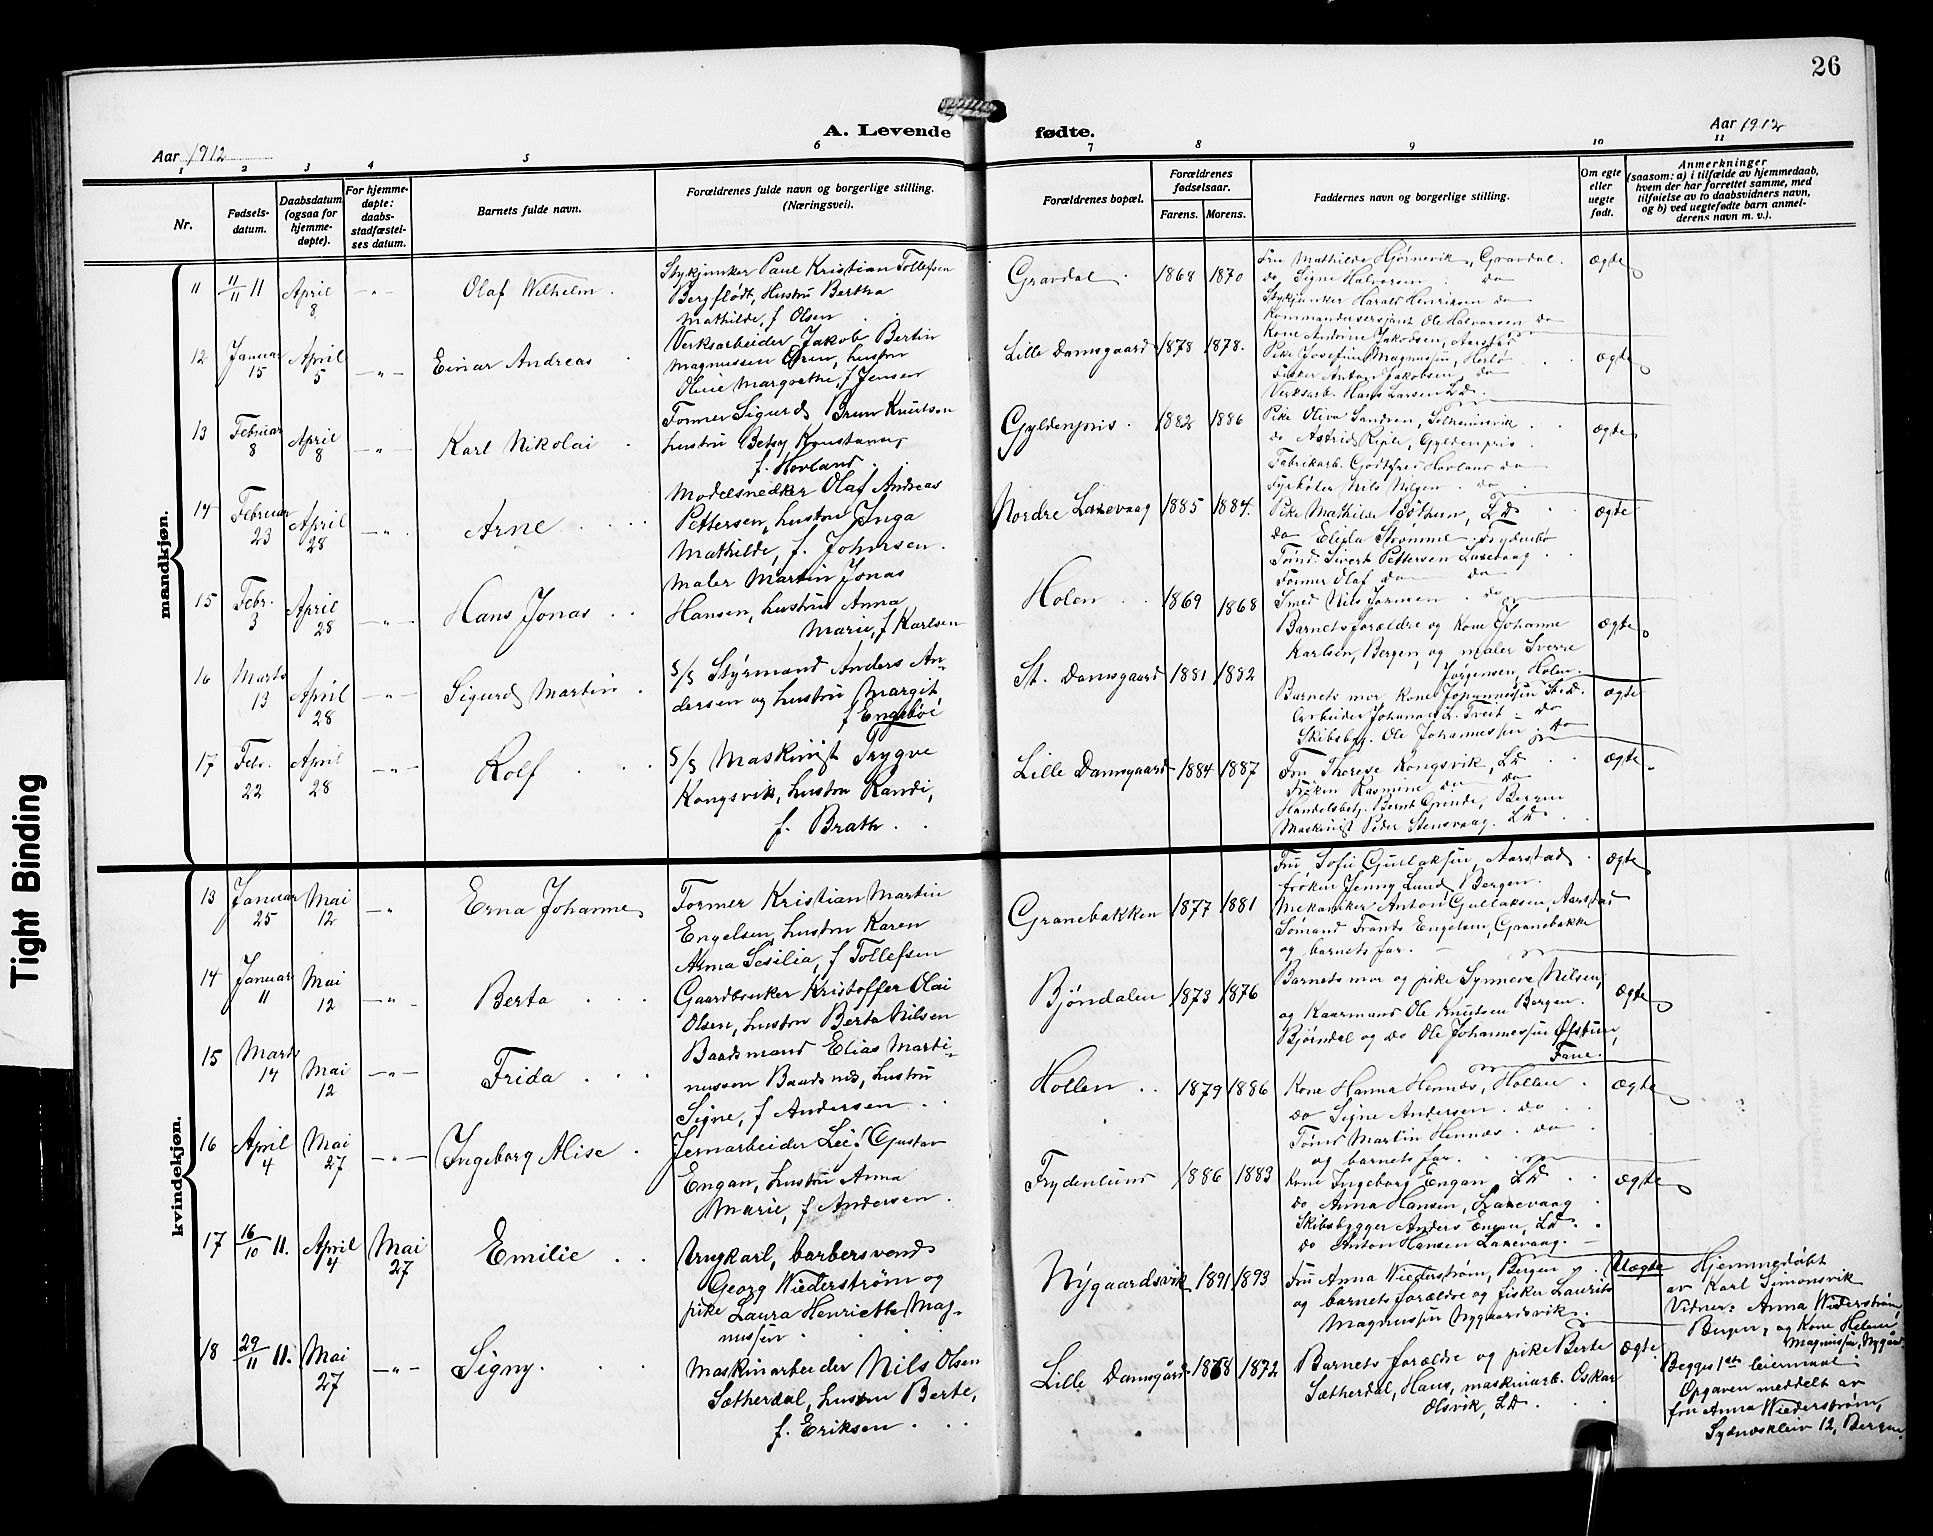 26
A. Levende fødte.
Aar 1912
Aar 1912
1 2 3 4 5 6 7 8 9 10 11
Nr.
Fødsels-
datum.
Daabsdatum
(ogsaa for
hjemme-
døpte).
For hjemme-
døpte:
daabs-
stadfæstel-
ses datum.
Barnets fulde navn.
Forældrenes fulde navn og borgerlige stilling.
(Næringsvei).
Forældrenes bopæl.
Forældrenes
fødselsaar.
Farens. Morens.
Faddernes navn og borgerlige stilling.
Om egte
eller
uegte
født.
Anmerkninger
(saasom: a) i tilfælde av hjemmedaab,
hvem der har forrettet samme, med
tilføielse av to daabsvidners navn,
og b) ved uegtefødte barn anmel-
derens navn m. v.).
mandkjøn.
11 11/11 11 April 8 -"- Olaf Wilhelm.
Stykjunker Paul Kristian Tollefsen
Bergflødt, Hustru Bertha
Mathilde, f. Olsen
Gravdal 1868 1870
Fru Mathilde Hjørnevik, Gravdal.
do Signe Halvorsen do
Stykjunker Harald Henriksen do
Kommandersersjant Ole Halvorsen do
ægte
12 Januar 15 April 5 -"- Einar Andreas
Verksarbeider Jakob Bertin
Magnussen Gren, hustru
Oline Margrethe, f. Jensen
Lille Damsgaard 1878 1878.
Kone Andrine Jakobsen, Aarstad
Pike Josefine Magnussen, Herlø
Fisker Anton Jakobsen, do
Verksarb. Hans Larsen L.D.
ægte
13 Februar 8 April 8 -"- Karl Nikolai
Former Sigurd Brun Knutson
hustru Betsy Konstanse,
f. Hovland
Gyldenpris. 1882 1886
Pike Oliva Sandren, Solheimsvik
do Astrid Riple, Gyldenpris
Fabrikarb. Godtfred Hovland do
Fyrbøter Nils Nilsen do
ægte
14 Februar 23 April 28 -"- Arne
Modelsnedker Olaf Andreas
Pettersen, hustru Inga
Mathilde, f. Johnsen.
Nordre Laxevaag 1885 1884.
Pike Mathilde Bøthun, L.D.
do Elida Strømme, Frydenbø
Tønd. Sivert Pettersen Laxevaag
Former Olaf do do
Smed Nils Jormen do
ægte
15 Febr. 3 April 28 -"- Hans Jonas
Maler Martin Jonas
Hansen, hustru Anna
Marie, f. Karlsen
Holen 1869 1868
Barnets forældre og Kone Johanne
Karlsen, Bergen, og maler Sverre
Jørgensen, Holen
ægte
16 Marts 13 April 28 -"- Sigurd Martin
S/S Styrmand Anders An-
dersen og hustru Margit
f. Engebøe
St. Damsgaard 1881 1882
Barnets mor, Kone Johannessen St. D.
Arbeider Johannes L. Tveit do
Skibsbg. Ole Johannessen do
ægte
17 Febr. 22 April 28 -"- Rolf
S/S Maskinist Trygve
Kongsvik, hustru Randi,
f. Brath
Lille Damsgaard 1884 1887
Fru Therese Kongsvik, L.D.
Frøken Rasmine do do
Handelsbetj. Bernt Grende, Bergen
Maskinist Peder Stensvaag, L.D.
ægte
kvindekjøn.
13 Januar 25 Mai 12 -"- Erna Johanne
Former Kristian Martin
Engelsen, hustru Karen
Anna Sesilia, f. Tollefsen
Granebakken 1877 1881
Fru Sofie Gullaksen, Aarstad
frøken Jenny Lund, Bergen.
Mekaniker Anton Gullaksen, Aarstad
Sømand Frants Engelsen, Granebakke
og barnets far.
ægte
14 Januar 11 Mai 12 -"- Berta
Gaardbruker Kristoffer Olai
Olsen, hustru Berta Nilsen
Bjøndalen 1873 1876
Barnets mor og pike Synneve Nilsen,
og Kaarmand Ole Knutsen Bergen.
Bjørndal og do Ole Johannessen Østtun,
Fane.
ægte
15 Marts 14 Mai 12 -"- Frida
Baadsmand Elias Marti-
nussen Baadsnes, hustru
Signe, f. Andersen
Hollen 1879 1886
Kone Hanna Hennøs, Hollen
do Signe Andersen do
Tønd. Martin Hennøs do
og barnets far.
ægte
16 April 4 Mai 27 -"- Ingeborg Alise
Jernarbeider Leif Gustav
Engan, hustru Anna
Marie, f. Andersen
Frydenlund 1886 1883
Kone Ingeborg Engan, L.D.
do Anna Hansen, Laxevaag
Skibsbygger Anders Engan, L.D.
do Anton Hansen Laxevaag
ægte
17 16/10 11. April 4 Mai 27 Emilie
Ungkarl, barbersvend
Georg Wiederstrøm og
pike Laura Henriette Mag-
nussen
Nygaardsvik 1891 1893
Fru Anna Wiederstrøm, Bergen
og barnets forældre og fisker Laurits
Magnussen Nygaardsvik.
Uægte
Hjemmedøbt
av Karl Simonsvik
Vidner: Anna Widerstrøm,
Bergen, og Kone Helene
Magnussen, Nygård
Begges 1ste leiermaal
Opgaven meddelt av
fru Anna Wiederstrøm,
Sydneskleiv 12, Bergen.
18 29/11 11. Mai 27 -"- Signy.
Maskinarbeider Nils Olsen
Sætherdal, hustru Berte,
f. Eriksen
Lille Damsgård 1868 1872
Barnets forældre og pike Berte
Sætherdal, Haus, maskinarb. Oskar
Olsvik, L.D.
ægte
Tight Binding